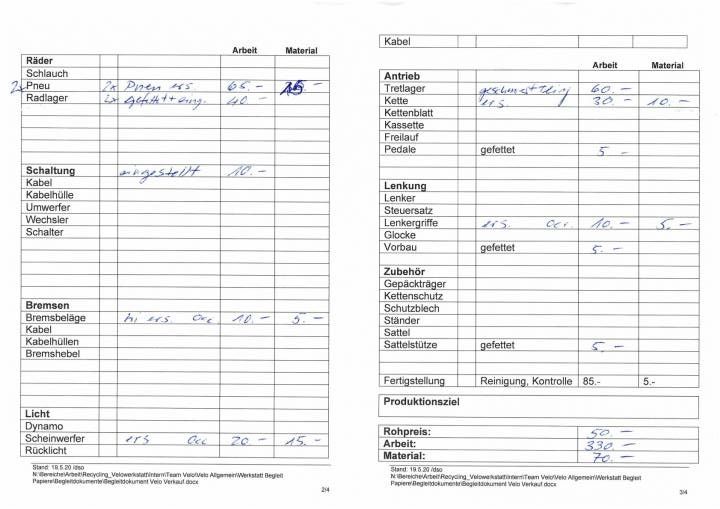 Arbeit Material
Räder
Schlauch
2x Pneu 2x Pneu ers. 65.- 15.-
Radlager 2x gefettet + eing. 40.-
Schaltung eingestellt 10.-
Kabel
Kabelhülle
Umwerfer
Wechsler
Schalter
Bremsen
Bremsbeläge hi ers. Occ 10.- 5.-
Kabel
Kabelhüllen
Bremshebel
Licht
Dynamo
Scheinwerfer ers Occ 20- 15.-
Rücklicht
Stand: 19.5.20 /dso
N:\Bereiche\Arbeit\Recycling_Velowerkstatt\Intern\Team Velo\Velo Allgemein\Werkstatt Begleit
Papiere\Begleitdokumente\Begleitdokument Velo Verkauf.docx
2/4
Kabel
Arbeit Material
Antrieb
Tretlager 60.-
Kette ers. 30.- 10.-
Kettenblatt
Kassette
Freilauf
Pedale gefettet 5-
Lenkung
Lenker
Steuersatz
Lenkergriffe ers Occ. 10.- 5.-
Glocke
Vorbau gefettet 5.-
Zubehör
Gepäckträger
Kettenschutz
Schutzblech
Ständer
Sattel
Sattelstütze gefettet 5.-
Fertigstellung Reinigung, Kontrolle 85.- 5.-
Produktionsziel
Rohpreis: 50.-
Arbeit: 330.-
Material: 70.-
Stand: 19.5.20 /dso
N:\Bereiche\Arbeit\Recycling_Velowerkstatt\Intern\Team Velo\Velo Allgemein\Werkstatt Begleit
Papiere\Begleitdokumente\Begleitdokument Velo Verkauf.docx
3/4